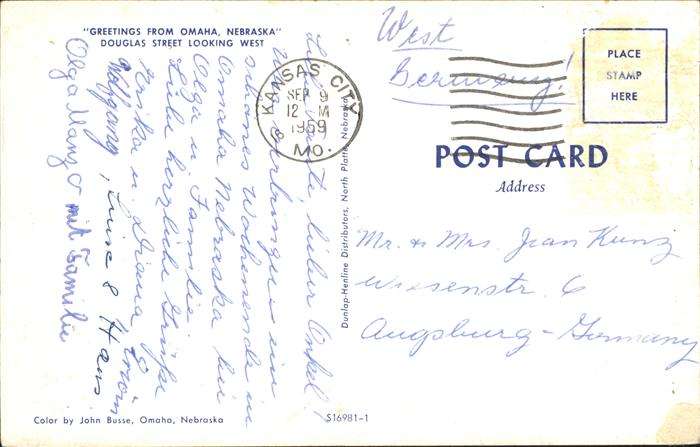 "GREETINGS FROM OMAHA, NEBRASKA"
DOUGLAS STREET LOOKING WEST
Liebe Tante, lieber Onkel!
Wir verbringen ein
schönes Wochenende in
Omaha Nebraska bei
Olga u Familie.
Liebe herzliche Grüße
Erika u. Diana
Wolfgang, Luise & Hans
Erwin
Olga Manz mit Familie
Color by John Busse, Omaha, Nebraska
Dunlap-Henline Distributors, North Platte, Nebraska
S16981-1
KANSAS CITY
SEP 9
12 M
1959
MO.
West
Germany!
PLACE
STAMP
HERE
POST CARD
Address
Mr. & Mrs. Jean Kunz
Wiesenstr. 6
Augsburg-Germany